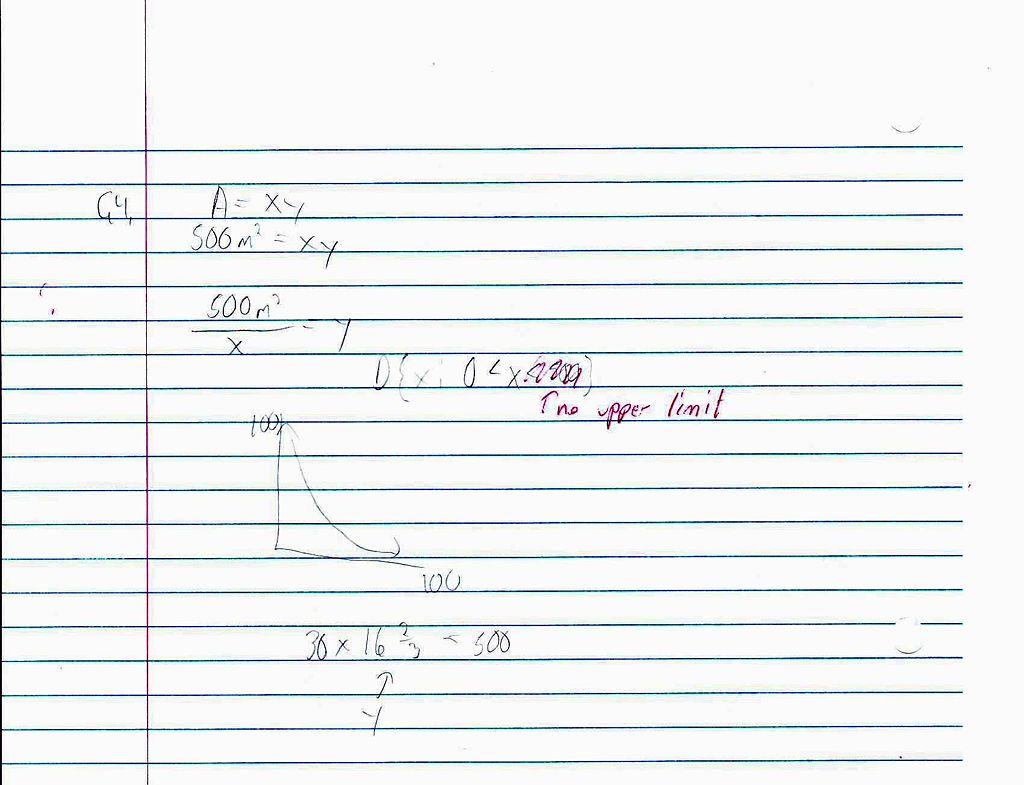 64. A = xy
500 m² = xy
500 m²
x = y
D{x: 0 < x }
↑ no upper limit
100
100
30 × 16 2/3 = 500
↑
y